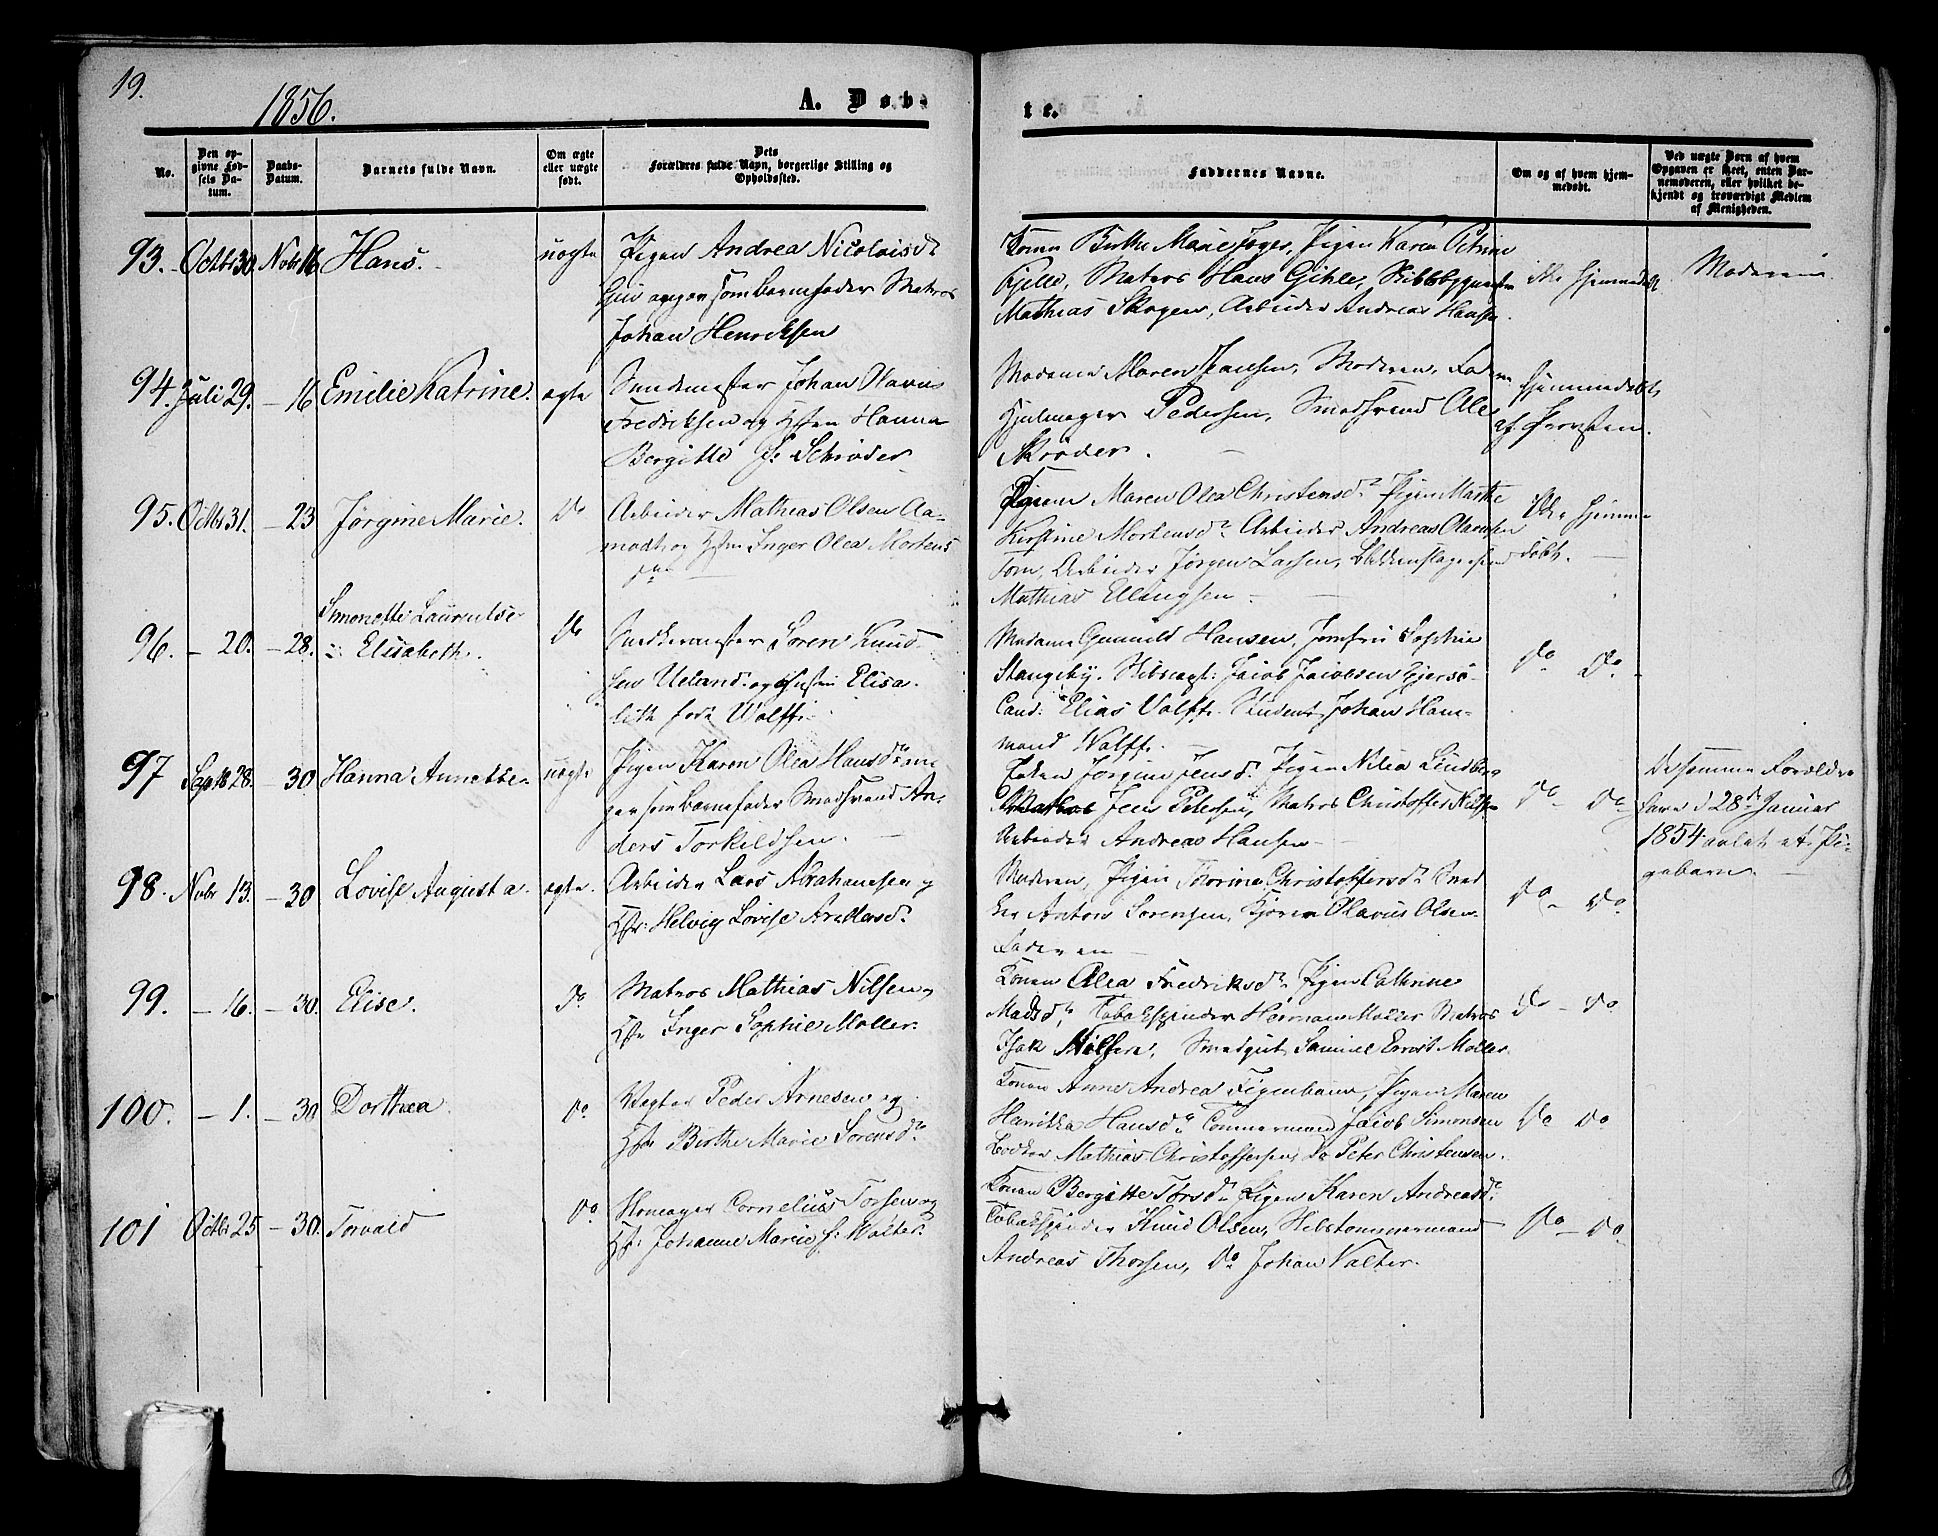 19.
1856.
A. Døbte.
No.
Den opgivne Fødsels Datum.
Daabs-Datum.
Barnets fulde Navn.
Om ægte eller uægte født.
Dets Forældres fulde Navn, borgerlige Stilling og Opholdssted.
Faddernes Navne.
Om og af hvem hjemmedøbt.
Ved uægte Børn af hvem Opgaven er skeet, enten Barnemoderen, eller hvilket bekjendt og troværdigt Medlem af Menigheden.
93. Octbr 30. Novbr 16 Hans. uægte Pigen Andrea Nicolaisdr
som Barnefader Matros
Johan Henriksen
Konen Birthe Marie Pigen Karen Petrine
Matros Hans Gihle,
Mathias Skogen, Arbeider Andreas Hansen.
ikke hjemmedøbt
Moderen
94. Juli 29. – 16 Emilie Katrine. ægte Johan Olavus
Fredriksen og Hstru Hanna
Bergitte f: Schrøder
Madame Maren Jansen, Moderen, Faderen
Hjulmager Pedersen, Smedsvend Ole
Skrøder.
hjemmedøbt
af Provsten.
95. Octbr 31. – 23 Jørgine Marie. Do Arbeider Mathias Olsen Aa-
modt og Hstru Inger Olea Mortens
Maren Olea Christensdr Pigen Marthe
Kirstine Mortensdr Arbeider Andreas Olavesen
Arbeider Jørgen Larsen,
Mathias Ellingsen
Ikke hjemme
døbt.
96. – 20. – 28. Simonette Laurentse
Elisabeth. Do Snedkermester Søren Knud
sen Ueland og Hustru Elisa
beth født Wolff
Madame Gunnild Hansen, Jomfru Sophie
Stangeby, Jacob Jacobsen
Cand: Elias Wolff. Student Johan Ham-
mond Wolff.
Do Do
97 Septb 28. – 30 Hanna Annette uægte Pigen Karen Olea Hansdr an
ger som Barnefader Smedsvend An-
ders Torkildsen.
Konen Jørgine Jensdr Pigen Nilia Lindberg
Jens Petersen, Matros Christoffer Nilsen
Arbeider Andreas Hansen
Do Do
De samme Forældre
have d 28de Januar
1854 avlet et Pi-
gebarn.
98. Novbr 13. – 30 Lovise Augusta. ægte. Arbeider Lars Abrahamsen og
Hstr: Helvig Lovise
Moderen, Pigen Thorine Christoffersdr
Anton Sørensen, Olavus Olsen
Faderen
Do – Do
99. – 16. – 30. Elise. Do Matros Mathias Nilsen og
Hstr Inger Sophie Møller.
Konen Olea Fredriksdr Pigen Cathrine
Madsdr, Tobakspinder Herman Møller Matros
Isak Nilsen, Smedgut Samuel Ernst Møller
Do – Do
100. – 1. – 30 Dorthea. Do Vægter Peder Arnesen og
Hstr Birthe Marie Sørensdr
Konen Anne Andrea Figenbaum, Pigen Maren
Henrikka Hansdr Tømmermand Jacob Simonsen
Bødker Mathias Christoffersen, Do Peter Christensen.
Do Do
101 Octbr 25 – 30. Torvald Do Skomager Cornelius Torsen og
Hst: Johanne Marie f: Walter.
Konen Bergitte Torsdr Pigen Karen Andreasdr
Tobakspinder Knud Olsen, Skibstømmermand
Andreas Thorsen, Do Johan Valter.
Do – Do